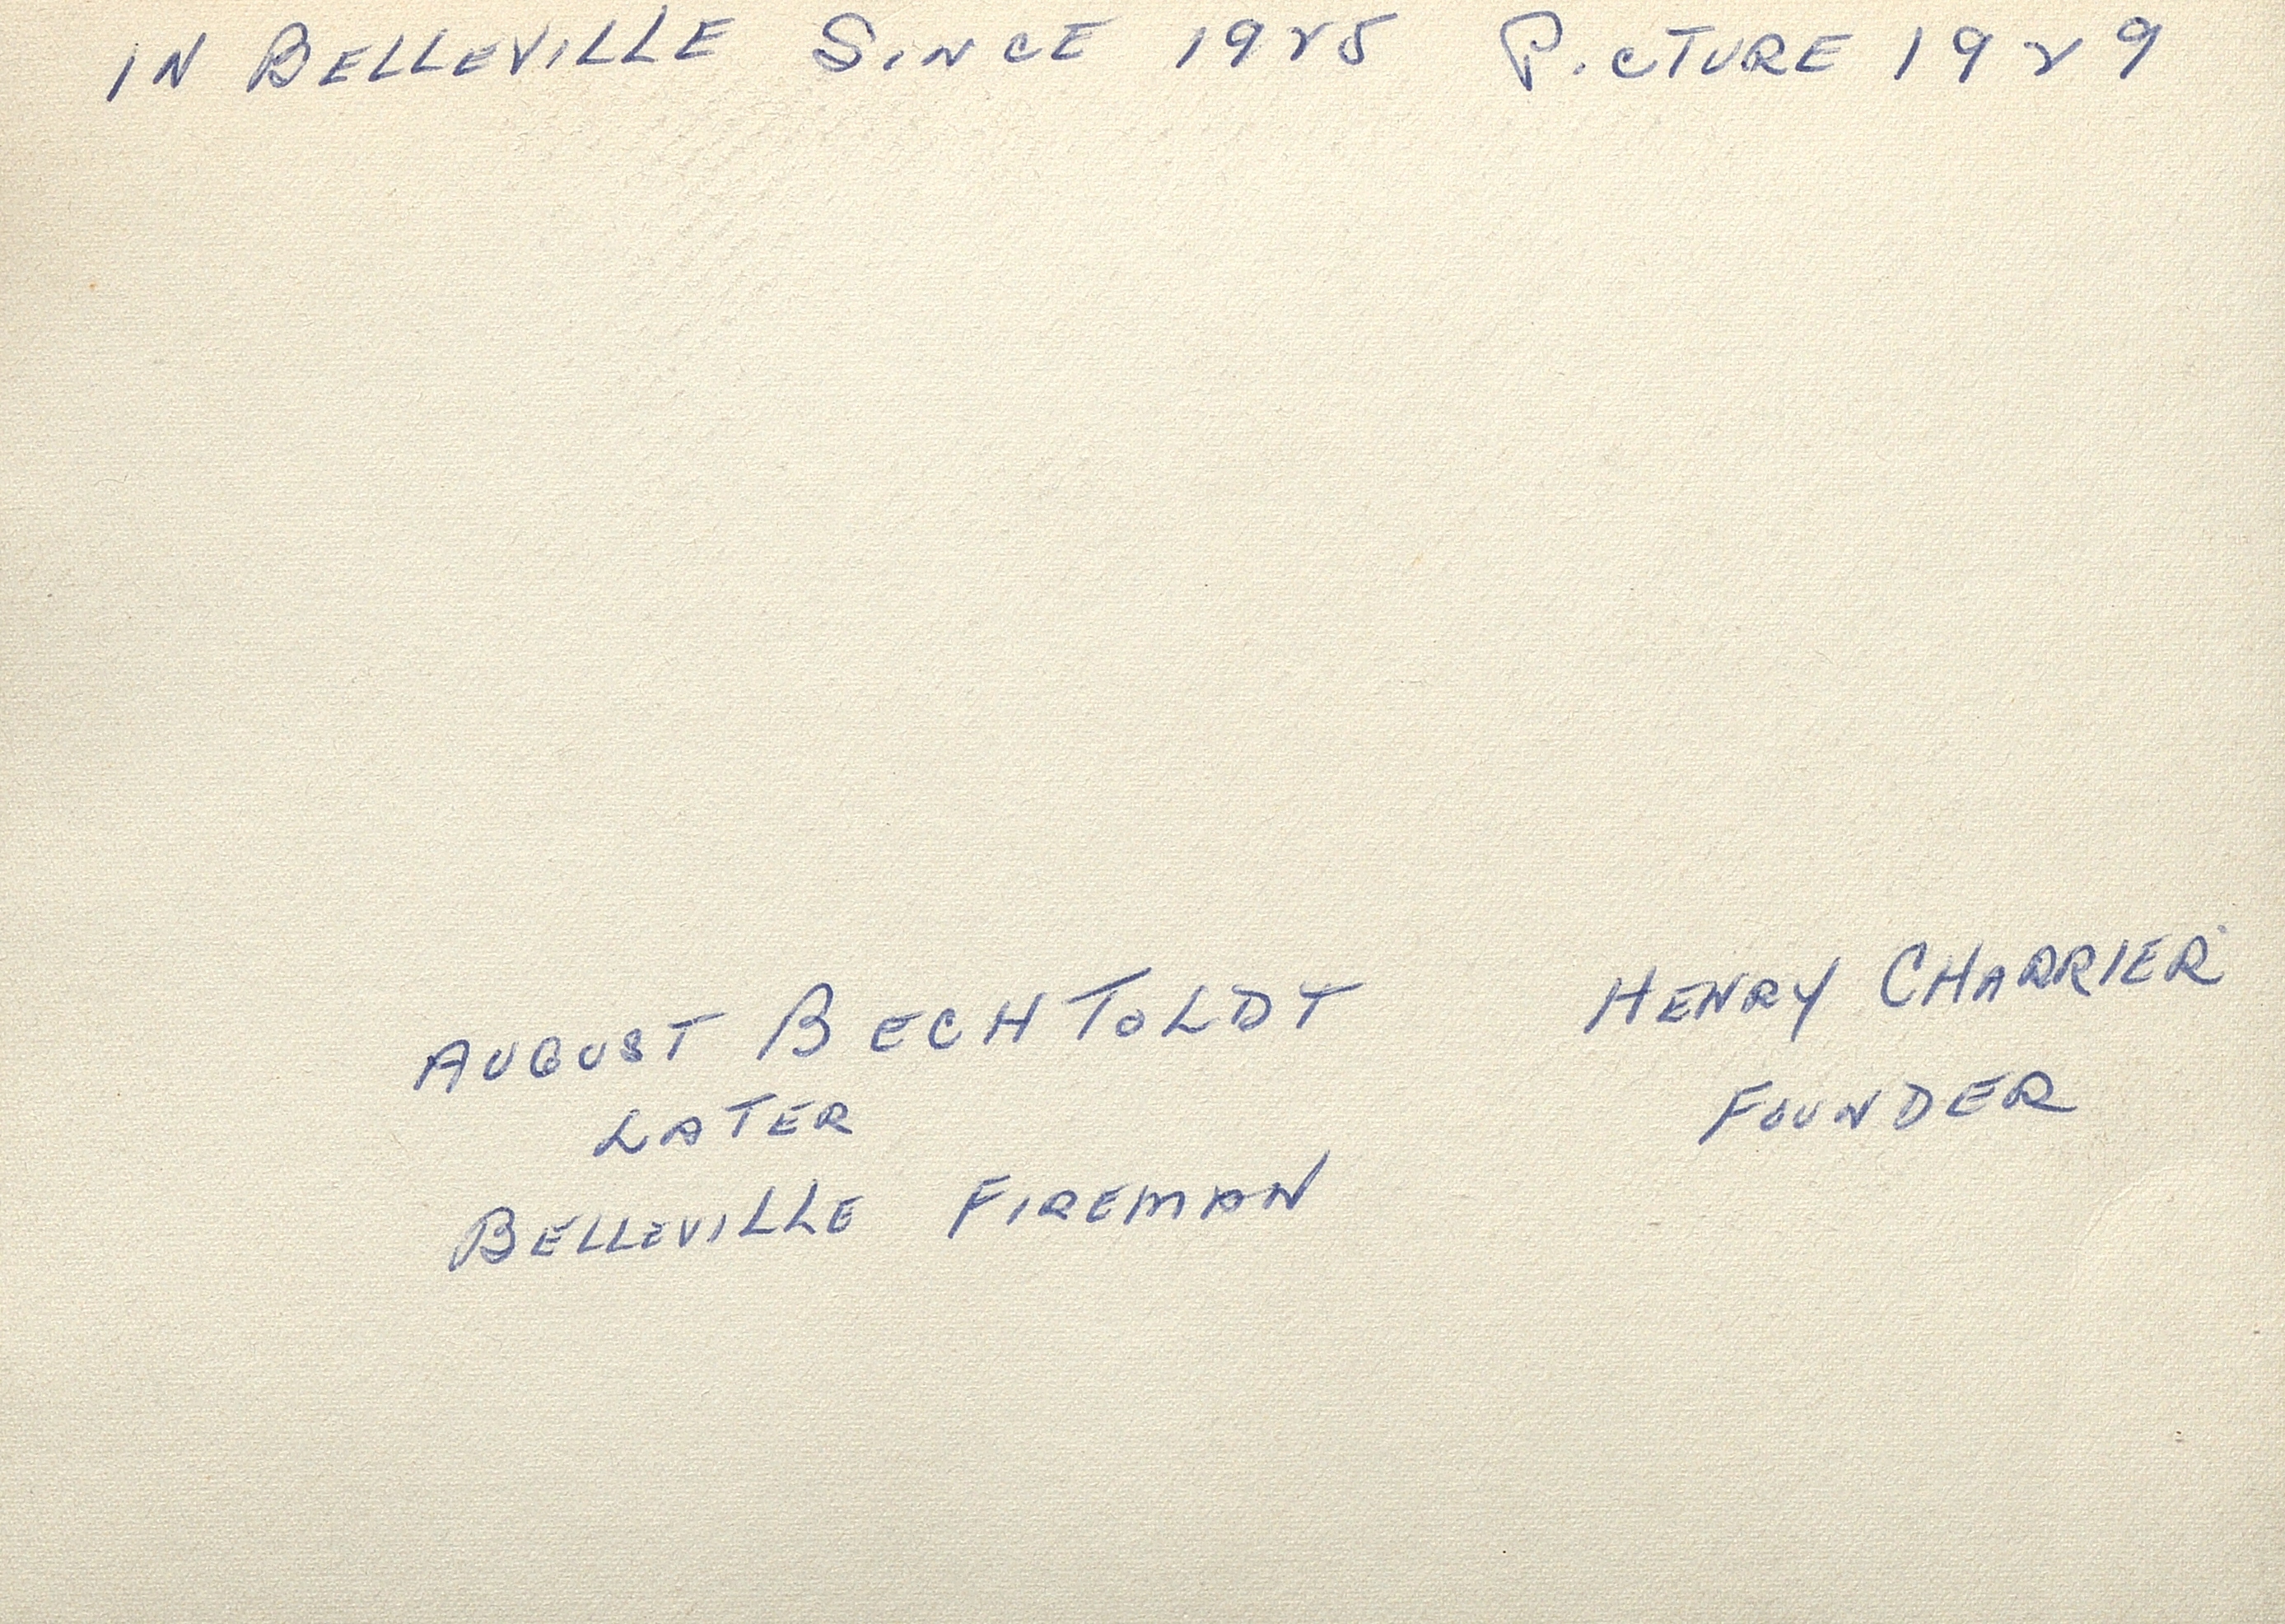 IN BELLEVILLE SINCE 1925 PICTURE 1929
AUGUST BECHTOLDT
LATER
BELLEVILLE FIREMAN
HENRY CHARRIER
FOUNDER